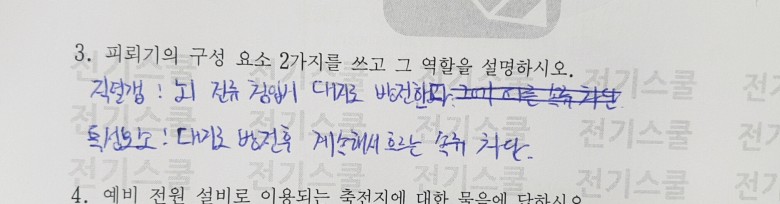 3. 피뢰기의 구성 요소 2가지를 쓰고 그 역할을 설명하시오.
직렬갭 : 뇌 전류 침입시 대지로 방전한다. 속류 차단
특성요소 : 대지로 방전후 계속해서 흐르는 속류 차단.
4. 예비 전원 설비로 이용되는 축전지에 대한 물음에 답하시오
전기스쿨 전기스쿨 전기스쿨 전기스쿨 전기
전기스쿨 전기스쿨 전기스쿨 전기스쿨 전기
전기스쿨 전기스쿨 전기스쿨 전기스쿨 전기